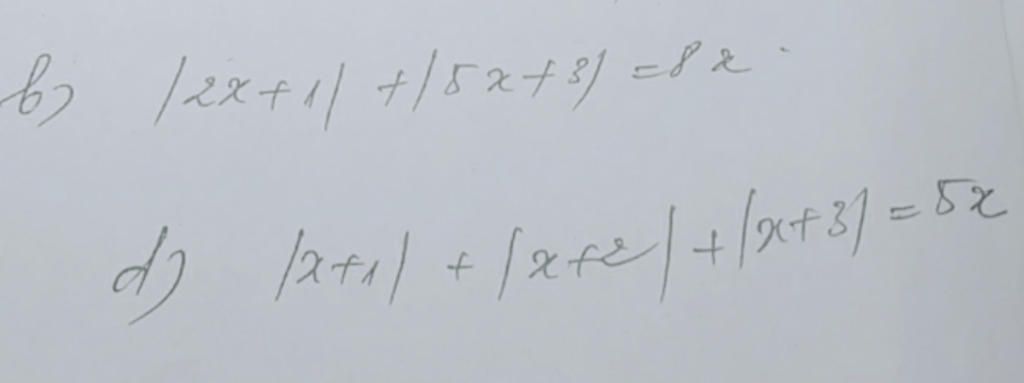 b) |2x+1| + |5x+3| = 8x.
d) |x+1| + |x+2| + |x+3| = 5x